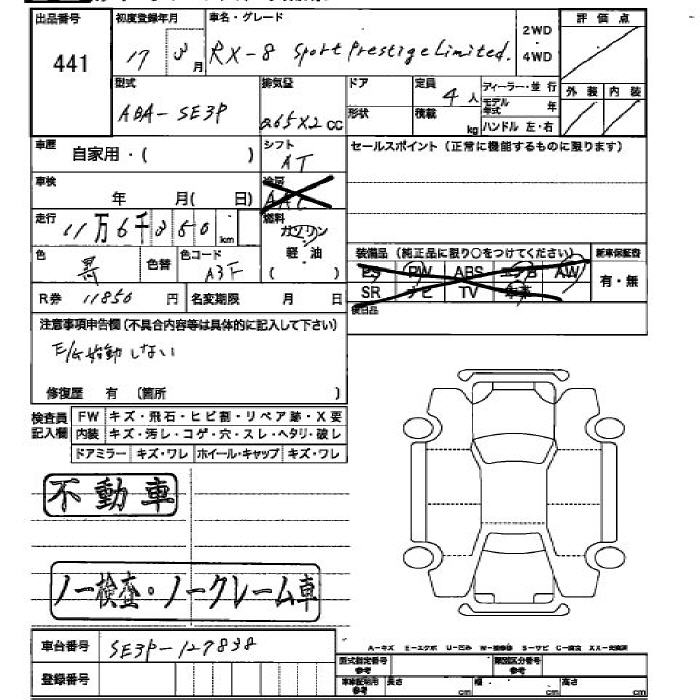 出品番号 初度登録年月 車名・グレード 評価点
441 17 8月 RX-8 Sport Prestige Limited. 2WD 4WD
型式 排気量 ドア 定員 ディーラー・並行 外装 内装
ABA-SE3P 0.65X2 cc 4人 モデル年式 年
形状 積載 kg ハンドル 左・右
車歴 自家用・( ) シフト AT セールスポイント(正常に機能するものに限ります)
車検 年 月( 日) 冷房 AAC
走行 11万6千350 km 燃料 ガソリン
軽・油
色 黒 色替 色コード A3F ( ) 装備品(純正品に限り○をつけてください) 新車保証書
PS PW ABS エアB AW 有・無
R券 11850円 名変期限 月 日 SR ナビ TV 本革
後日品
注意事項申告欄(不具合内容等は具体的に記入して下さい)
E/G始動しない
修復歴 有 (箇所 )
検査員記入欄 FW キズ・飛石・ヒビ割・リペア跡・X要
内装 キズ・汚レ・コゲ・穴・スレ・ヘタリ・破レ
ドアミラー キズ・ワレ ホイール・キャップ キズ・ワレ
不動車
ノー検査・ノークレーム車
A-キズ E-エクボ U-凹み S-サビ C-腐食
車台番号 SE3P-127838 型式指定番号 参考 類別区分番号 参考
登録番号 車庫証明用 参考 長さ cm 幅 cm 高さ cm